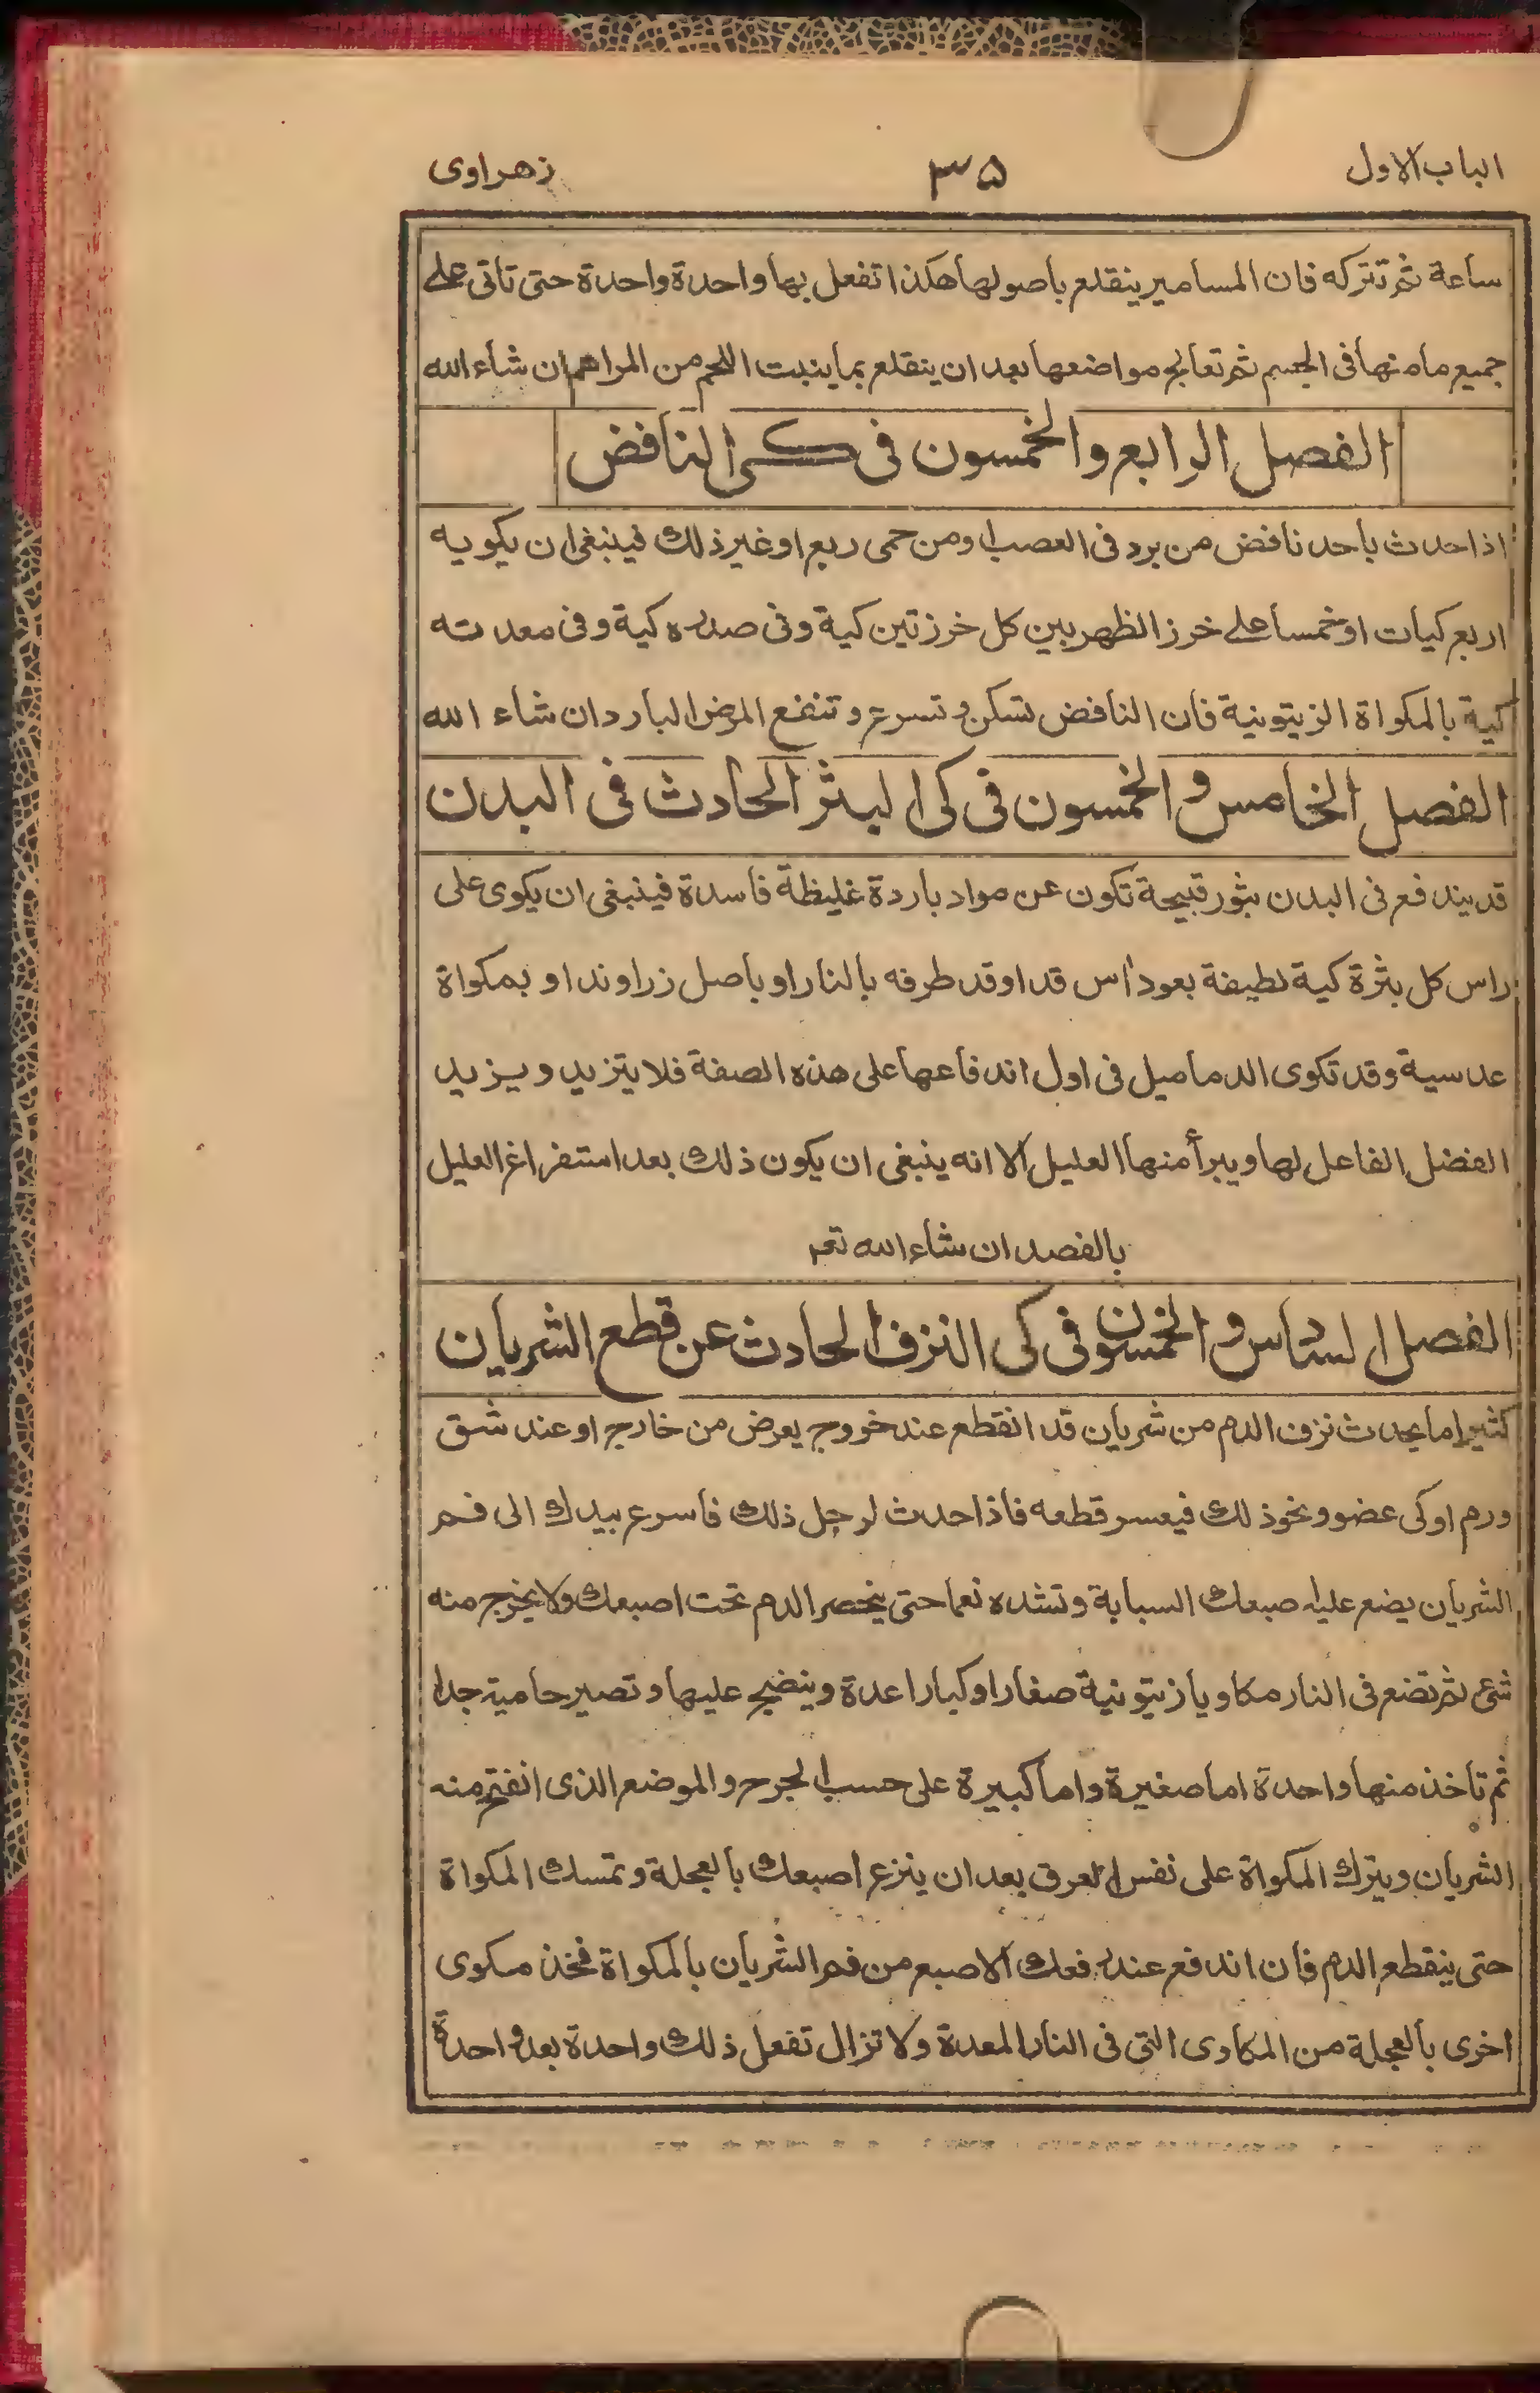 الباب الاول ٣٥ زهراوى
ساعة ثم تتركه فان المسامير ينقلع باصولها هكذا تفعل بها واحدة واحدة حتى تاتى على
جميع ما منها فى الجسم ثم تعالج مواضعها بعد ان ينقلع بما ينبت اللحم من المراهم ان شاء الله
الفصل الرابع والخمسون فى كى النافض
اذا حدث باحد نافض من برد فى العصب او من حمى ربع او غير ذلك فينبغى ان يكويه
اربع كيات او خمسا على خرز الظهر بين كل خرزتين كية وفى صدره كية وفى معدته
كية بالمكواة الزيتونية فان النافض تسكن و تسرع و تنفع المرض البارد ان شاء الله
الفصل الخامس و الخمسون فى كى البثر الحادث فى البدن
قد يندفع فى البدن بثور قبيحة تكون عن مواد باردة غليظة فاسدة فينبغى ان يكوى على
راس كل بثرة كية لطيفة بعود اس قد اوقد طرفه بالنار او باصل زراوند او بمكواة
عدسية وقد تكوى الدماميل فى اول اندفاعها على هذه الصفة فلا يتزيد و يزيد
الفضل الفاعل لها ويبرأ منها العليل الا انه ينبغى ان يكون ذلك بعد استفراغ العليل
بالفصد ان شاء الله تعم
الفصل السادس و الخمسون فى كى النزف الحادث عن قطع الشريان
كثيرا ما يحدث نزف الدم من شريان قد انقطع عند خروج يعرض من خارج او عند شق
ورم او كى عضو و نحو ذلك فيعسر قطعه فاذا حدث لرجل ذلك فاسرع بيدك الى فم
الشريان يضع عليه صبعك السبابة و تشده نعما حتى ينحصر الدم تحت اصبعك ولا يخرج منه
شئ ثم تضع فى النار مكاويا زيتونية صغارا و كبارا عدة وينضح عليها و تصير حامية جدا
ثم تاخذ منها واحدة اما صغيرة واما كبيرة على حسب الجرح والموضع الذى انفتح منه
الشريان ويترك المكواة على نفس العرق بعد ان ينزع اصبعك بالعجلة و تمسك المكواة
حتى ينقطع الدم فان اندفع عند رفعك الاصبع من فم الشريان بالمكواة فخذ مكوى
اخرى بالعجلة من المكاوى التى فى النار المعدة ولا تزال تفعل ذلك واحدة بعد واحدة